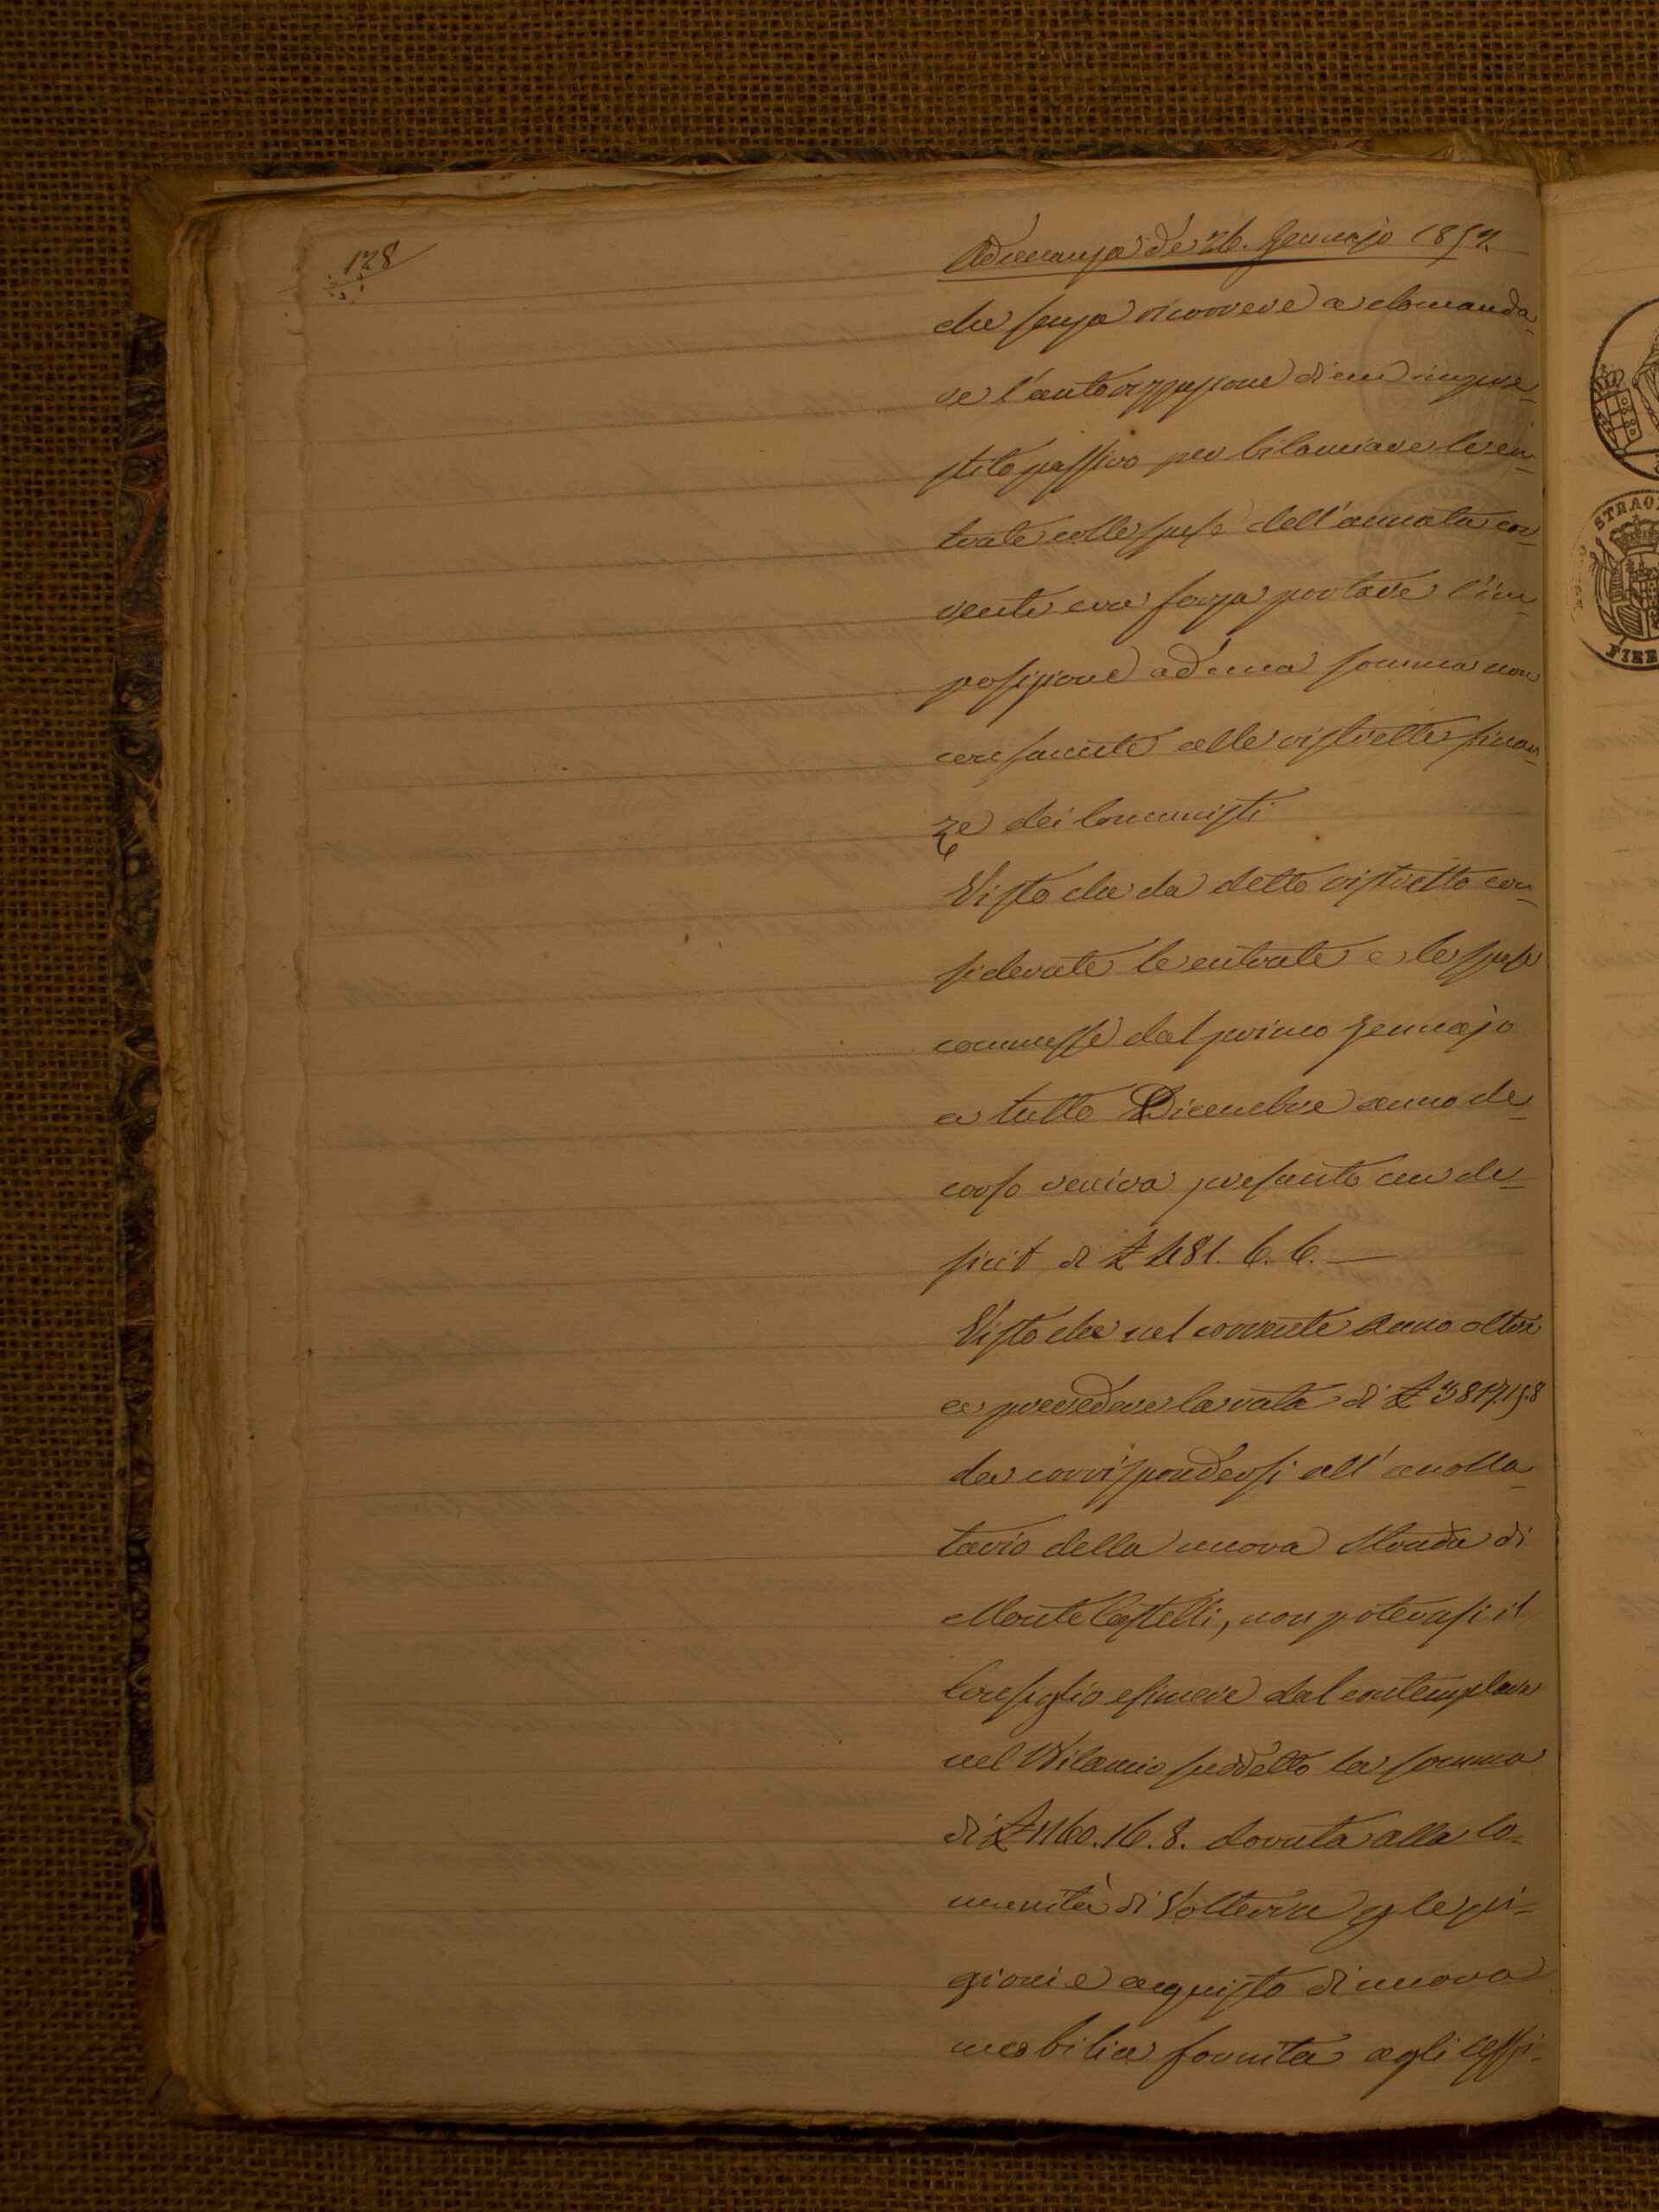 128
Adunanza de 26. Gennajo 1857.
che senza ricorrere a domanda-
re l'autorizzazione di un impre-
stito passivo per bilanciare le en-
trate colle spese dell'annata cor-
rente era forza portare l'im-
posizione ad una somma non
consonante alle ristrette finan-
ze dei Comunisti
Visto che da detto ristretto con-
siderate le entrate e le spese
commesse dal primo Gennajo
a tutto Dicembre anno de-
corso veniva presunto un de-
ficit di £ 481. 6. 6. —
Visto che nel corrente Anno oltre
a prevedere la rata di £ 3817.19.8
da corrispondersi all'accolla-
tario della nuova Strada di
Monte Castelli, non potevasi il
Consiglio esimere dal contemplare
nel Bilancio suddetto la somma
di £ 1160. 16. 8. dovuta alla Co-
munità di Volterra p le pi-
gioni e acquisto di nuova
mobilia fornita agli Uffi-
STRAO
FIRE